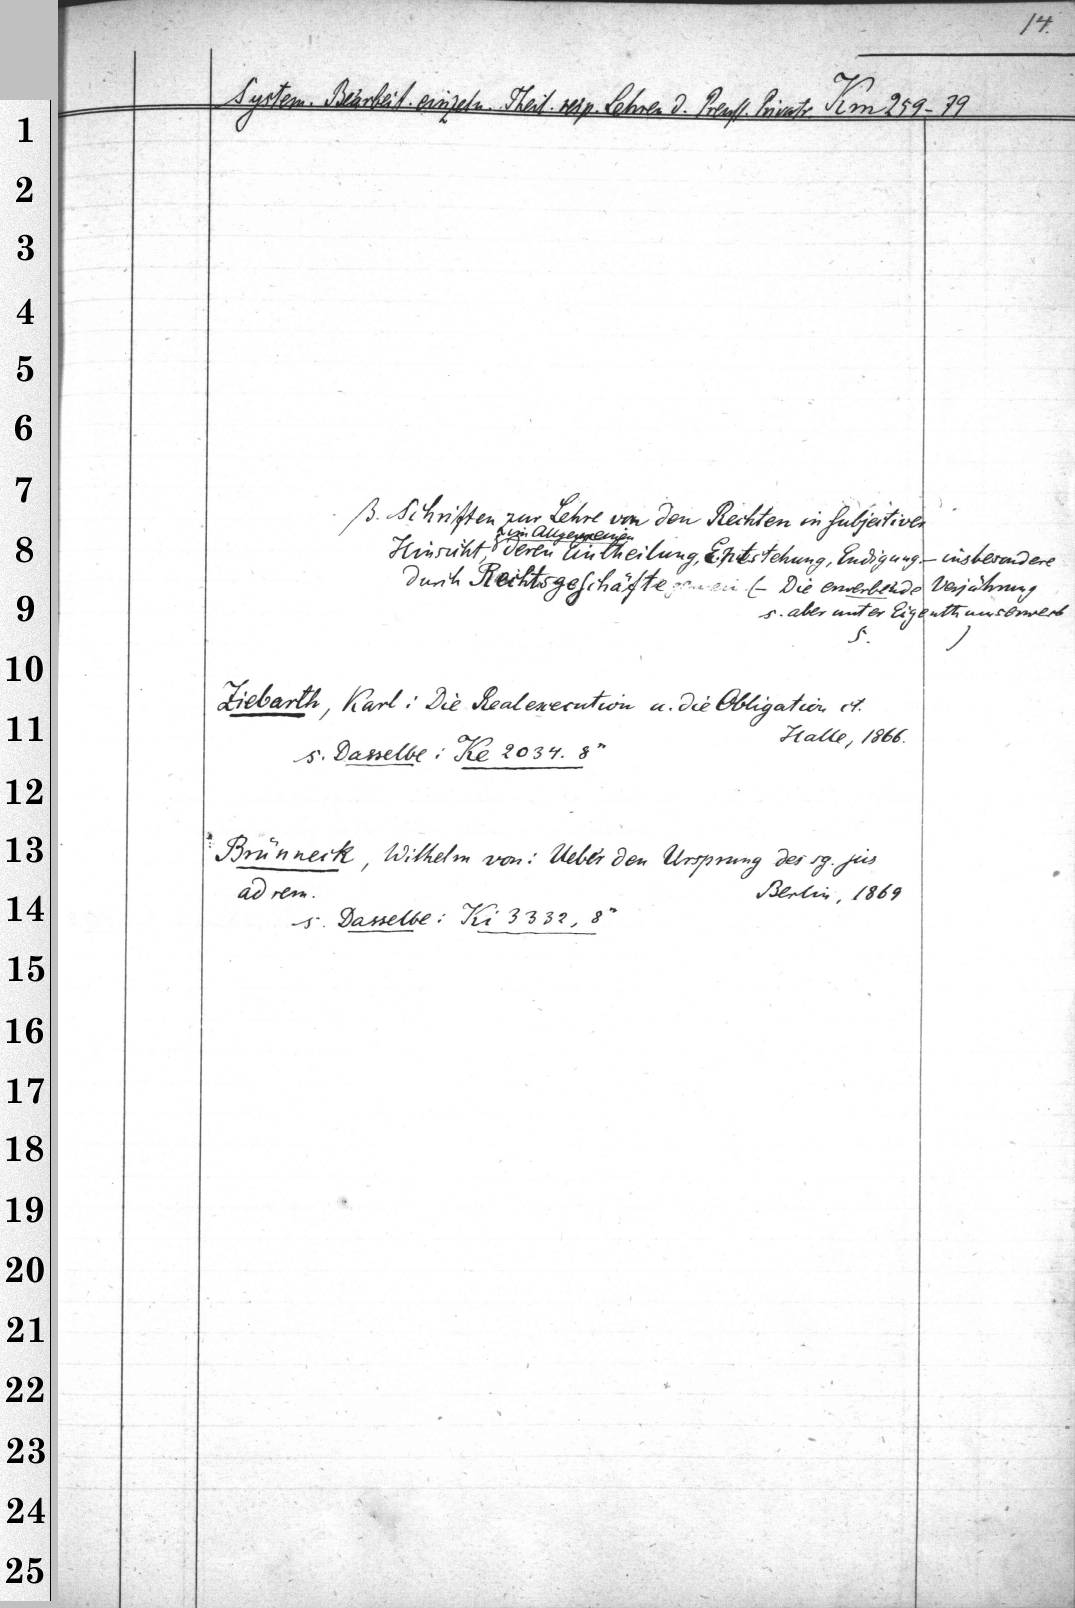 14.
System. Bearbeit. einzeln. Theil. resp. Lehren d. Preuß. Privatr. Km 259-79
1
2
3
4
5
6
7
β. Schriften zur Lehre von den Rechten in subjectiver
im Allgemeinen
8
Hinsicht, deren Eintheilung, Entstehung, Endigung – insbesondere
durch Rechtsgeschäfte (– Die erwerbende Verjährung
9
s. aber unter Eigenthumserwerb
s. )
10
Ziebarth, Karl: Die Realexecution u. die Obligation et.
11
Halle, 1866.
s. Dasselbe: Ke 2034. 8°
12
13
Brünneck, Wilhelm von: Ueber den Ursprung des sg. jus
ad rem. Berlin, 1869
14
s. Dasselbe: Ki 3332, 8°
15
16
17
18
19
20
21
22
23
24
25